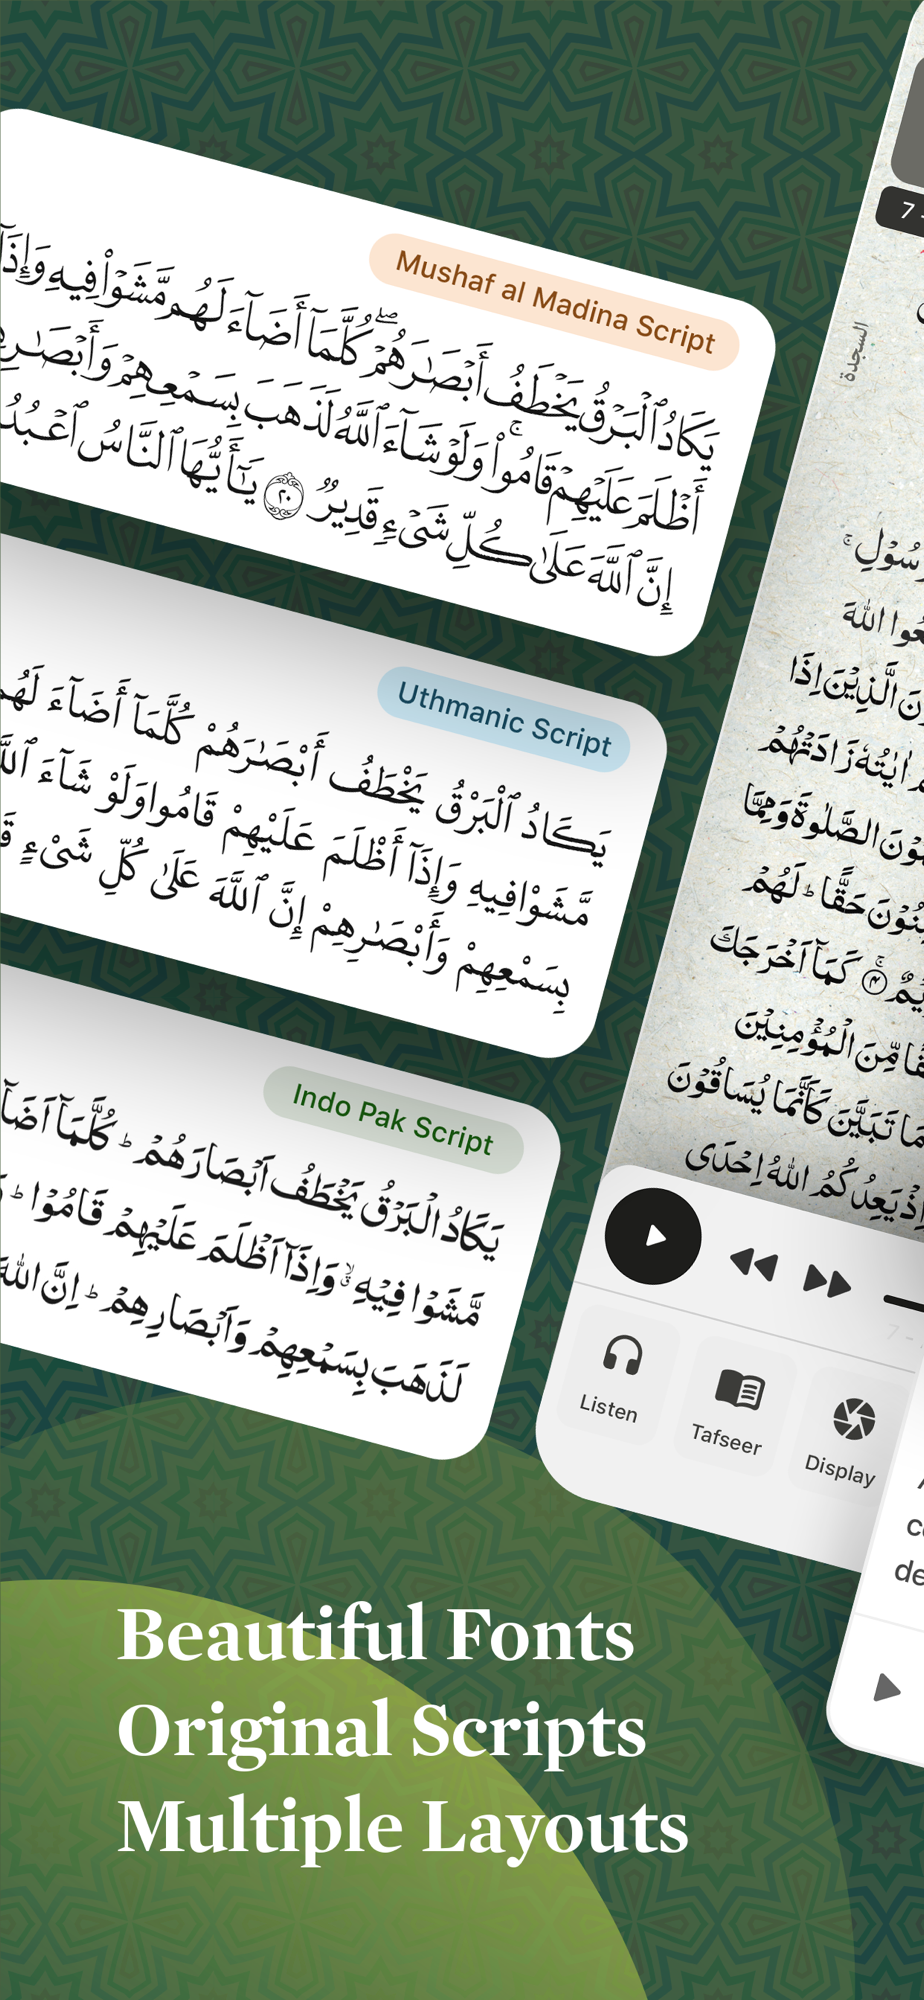 Mushaf al Madina Script
يَكَادُ ٱلْبَرْقُ يَخْطَفُ أَبْصَٰرَهُمْ ۖ كُلَّمَآ أَضَآءَ لَهُم مَّشَوْا۟ فِيهِ وَإِذَآ
أَظْلَمَ عَلَيْهِمْ قَامُوا۟ ۚ وَلَوْ شَآءَ ٱللَّهُ لَذَهَبَ بِسَمْعِهِمْ وَأَبْصَٰرِهِمْ
إِنَّ ٱللَّهَ عَلَىٰ كُلِّ شَىْءٍ قَدِيرٌ ٢٠ يَٰٓأَيُّهَا ٱلنَّاسُ ٱعْبُدُوا۟
Uthmanic Script
يَكَادُ ٱلْبَرْقُ يَخْطَفُ أَبْصَٰرَهُمْ كُلَّمَآ أَضَآءَ لَهُم
مَّشَوْا فِيهِ وَإِذَآ أَظْلَمَ عَلَيْهِمْ قَامُوا وَلَوْ شَآءَ
بِسَمْعِهِمْ وَأَبْصَٰرِهِمْ إِنَّ ٱللَّهَ عَلَىٰ كُلِّ شَىْءٍ
Indo Pak Script
يَكَادُ الْبَرْقُ يَخْطَفُ اَبْصَارَهُمْ ؕ كُلَّمَاۤ اَضَآءَ
مَّشَوْا فِيْهِ ۙ وَاِذَاۤ اَظْلَمَ عَلَيْهِمْ قَامُوْا ؕ
لَذَهَبَ بِسَمْعِهِمْ وَاَبْصَارِهِمْ ؕ اِنَّ اللّٰهَ
7 -
السجدة
اللّٰهَ
الَّذِيْنَ اِذَا
اٰيٰتُهٗ زَادَتْهُمْ
الصَّلٰوةَ وَمِمَّا
حَقًّا ؕ لَهُمْ
۴ كَمَاۤ اَخْرَجَكَ
مِّنَ الْمُؤْمِنِيْنَ
تَبَيَّنَ كَاَنَّمَا يُسَاقُوْنَ
يَعِدُكُمُ اللّٰهُ اِحْدَى
7 -
Listen
Tafseer
Display
Beautiful Fonts
Original Scripts
Multiple Layouts